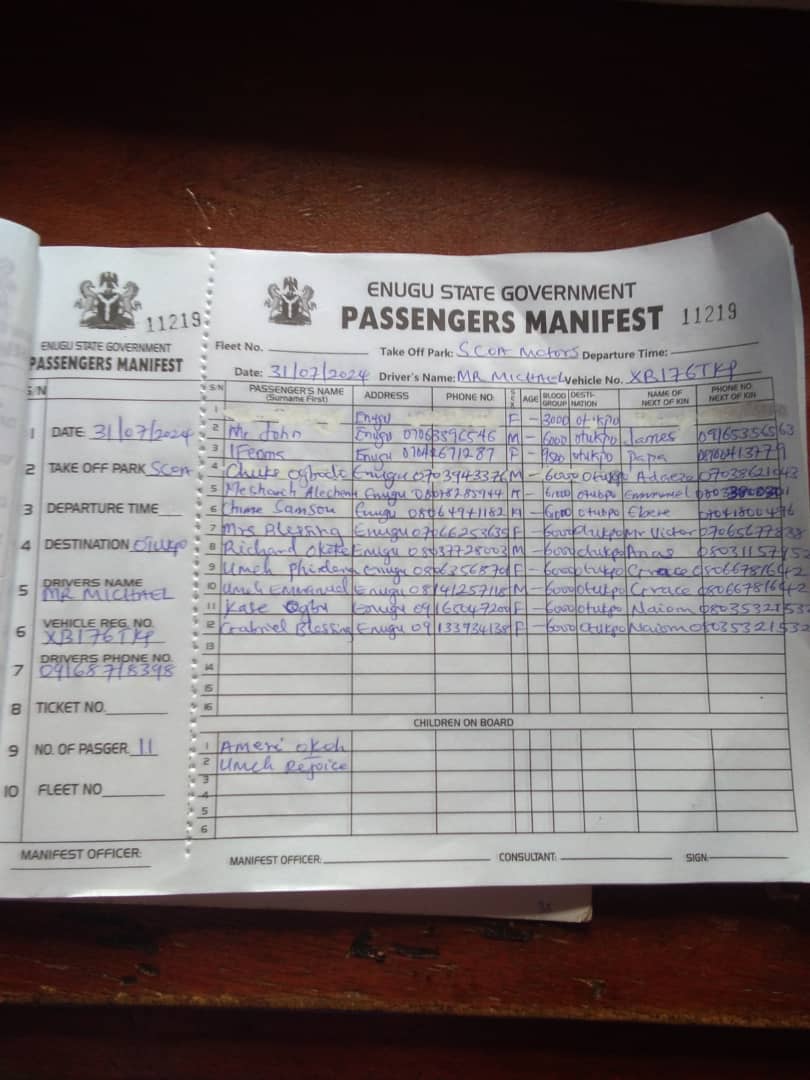 11219
ENUGU STATE GOVERNMENT
PASSENGERS MANIFEST
S/N
1 DATE: 31/07/2024
2 TAKE OFF PARK Scoa
3 DEPARTURE TIME
4 DESTINATION Otukpo
5 DRIVERS NAME
MR MICHAEL
6 VEHICLE REG. NO.
XB176TKP
7 DRIVERS PHONE NO.
09168718398
8 TICKET NO.
9 NO. OF PASGER 11
10 FLEET NO
MANIFEST OFFICER:
ENUGU STATE GOVERNMENT
PASSENGERS MANIFEST 11219
Fleet No. Take Off Park: Scoa Motors Departure Time:
Date: 31/07/2024 Driver's Name: MR MICHAEL Vehicle No. XB176TKP
S/N PASSENGER'S NAME (Surname First) ADDRESS PHONE NO: SEX AGE BLOOD GROUP DESTI-NATION NAME OF NEXT OF KIN PHONE NO. NEXT OF KIN
1 Enugu F - 3000 otukpo
2 Mr John Enugu 07063596546 M - 6000 otukpo James 09165356563
3 Ifeoma Enugu F - otukpo Papa
4 Chuke Enugu 0703943376 M - 6000 otukpo Adaeze
5 Enugu M - 6000 otukpo Emmanuel
6 Chime Samson Enugu 08064941182 M - 6000 otukpo Ebere
7 Mrs Blessing Enugu 07066253635 F - 6000 otukpo Mr Victor
8 Richard Okeke Enugu 08037728003 M - 6000 otukpo
9 Umeh Enugu F - 6000 otukpo Grace
10 Umeh Emmanuel Enugu M - 6000 otukpo Grace
11 Kase Ogby Enugu F - 6000 otukpo Naiom
12 Gabriel Blessing Enugu 09133934138 F - 6000 otukpo Naiom
13
14
15
16
CHILDREN ON BOARD
1 Ameri Okoh
2 Umeh Rejoice
3
4
5
6
MANIFEST OFFICER: CONSULTANT: SIGN.